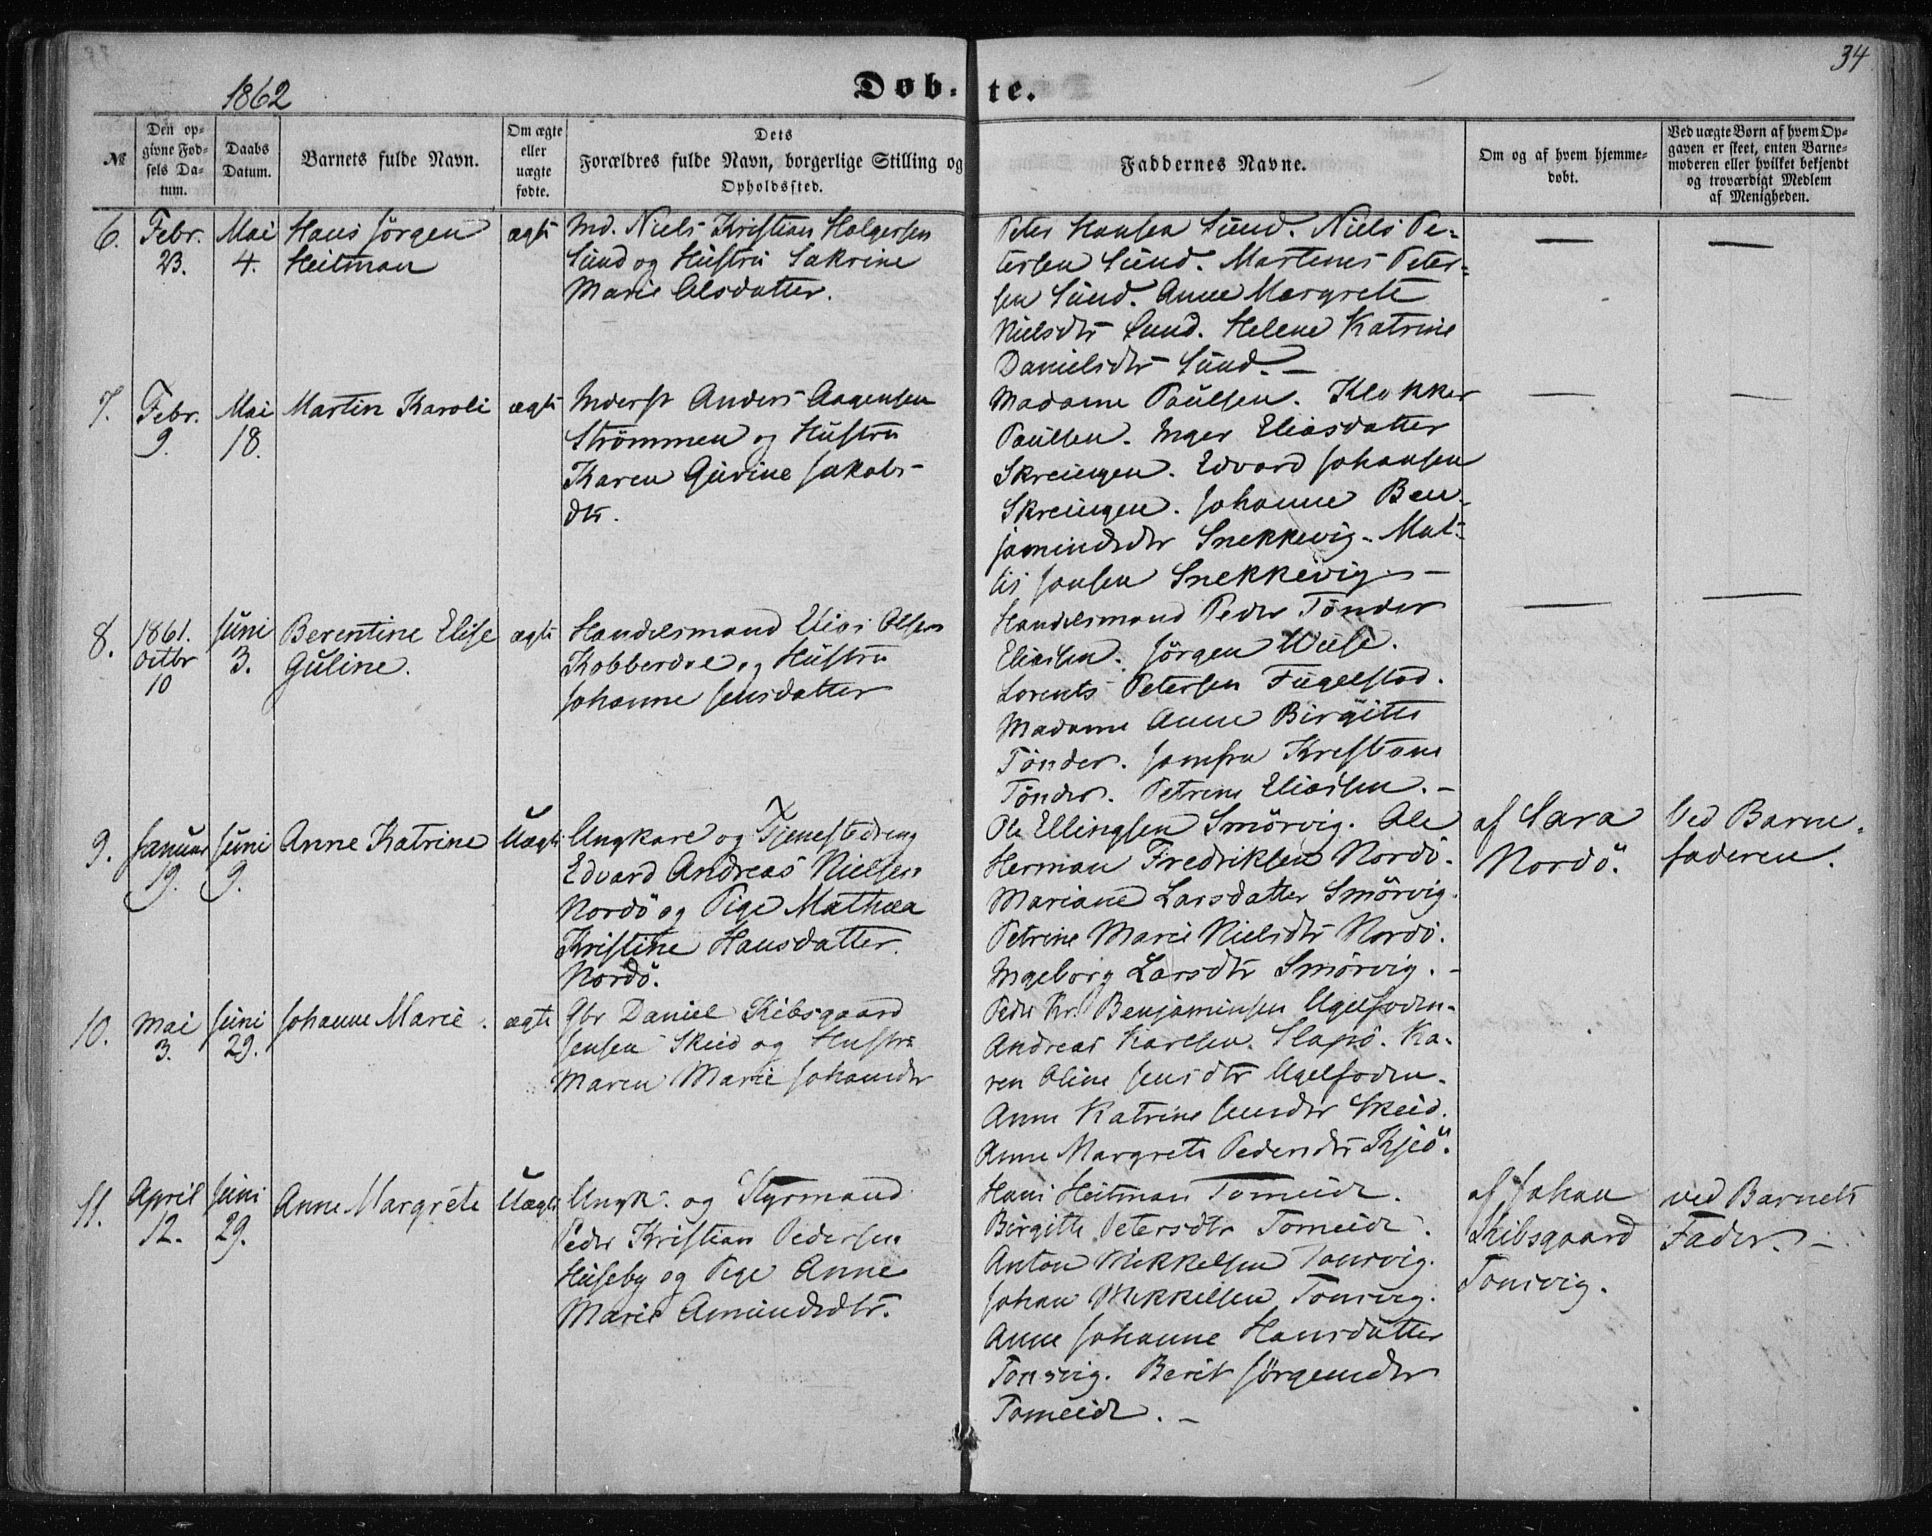 34
1862
Døb-te.
№
Den op-
givne Fød-
sels Da-
tum.
Daabs
Datum.
Barnets fulde Navn.
Om ægte
eller
uægte
fødte.
Dets
Forældres fulde Navn, borgerlige Stilling og
Opholdssted.
Faddernes Navne.
Om og af hvem hjemme-
døbt.
Ved uægte Børn af hvem Op-
gaven er skeet, enten Barne-
moderen eller hvilket bekjendt
og troværdigt Medlem
af Menigheden.
6.
Febr.
23.
Mai
4.
Hans Jörgen
Heitman
ægte
Md. Niels Kristian Holgersen
Sund og Hustru Sakrine
Marie Olsdatter.
Peter Hansen Sund. Niels Pe-
tersen Sund. Martenes Peter-
sen Sund. Anne Margrete
Nielsdtr Sund. Helene Katrine
Danielsdtr Sund. —
—
—
7.
Febr.
9.
Mai
18.
Martin Karoli
ægte
Inderst Anders Aagensen
Strömmen og Hustru
Karen Gurine Jakobs-
dtr.
Madame Paulsen. Klokker
Paulsen. Inger Eliasdatter
Skreingen. Edvard Johansen
Skreingen. Johanne Ben-
jaminsdtr Snekkevig. Mat-
tis Jonsen Snekkevig. —
—
—
8.
1861.
Octbr
10
Juni
3.
Berentine Elise
Guline.
ægte
Handelsmand Elias Olsen
Kobberdal og Hustru
Johanne Jensdatter
Handelsmand Peder Tönder
Eliassen. Jörgen Wiese.
Lorents Petersen Fugelstad.
Madame Anne Birgitte
Tönder. Jomfru Kristiane
Tönder. Petrine Eliassen. —
—
—
9.
Januar
19.
Juni
9.
Anne Katrine
Uægte
Ungkarl og Tjenestedreng
Edvard Andreas Nielsen
Nordö og Pige Mathea
Kristine Hansdatter.
Nordö.
Ole Ellingsen Smörvig. Ole
Herman Fredriksen Nordö.
Mariane Larsdatter Smörvig.
Petrine Marie Nielsdtr Nordö.
Ingeborg Larsdtr Smörvig. —
af Sara
Nordö.
Ved Barne-
faderen.
10.
Mai
3.
Juni
29.
Johanne Marie.
ægte
Gbr Daniel Kibsgaard
Jensen Skeid og Hustru
Maren Marie Johansdtr
Peder Kr. Benjaminsen Agelfoden.
Andreas Karlsen. Slapö. Ka-
ren Oline Jensdtr Agelfoden.
Anne Katrine Jensdtr Skeid.
Anne Margrete Pedersdtr Kjeö.
11.
April
12.
Juni
29.
Anne Margrete
Uægte
Ungk. og Styrmand
Peder Kristian Pedersen
Huseby og Pige Anne
Marie Amundsdtr.
Hans Heitman Tomeide.
Birgitte Petersdtr Tomeide.
Anton Mikkelsen Tonsvig.
Johan Mikkelsen Tonsvig.
Anne Johanne Hansdatter
Tonsvig. Berit Jörgensdtr
Tomeide. —
af Johan
Kibsgaard
Tonsvig.
ved Barnets
Fader. —